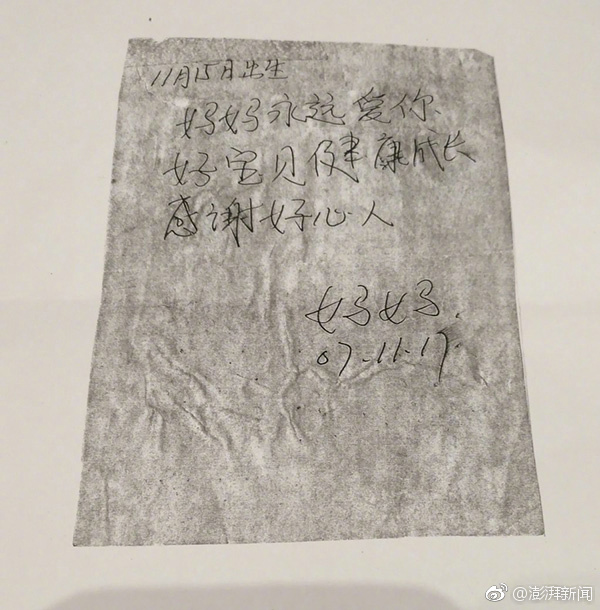 11月15月出生
妈妈永远爱你
好宝贝健康成长
感谢好心人
妈妈.
07.11.17.
@澎湃新闻